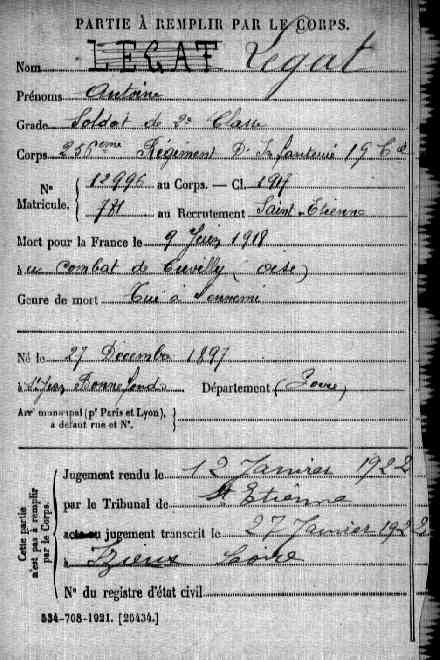 PARTIE À REMPLIR PAR LE CORPS.
Nom LEGAT Legat
Prénoms Antoine
Grade Soldat de 2e Classe
Corps 256eme Régiment D'Infanterie 19 Cie
Nº Matricule. 12996 au Corps. — Cl. 1917
781 au Recrutement Saint-Etienne
Mort pour la France le 9 Juin 1918
à au combat de Cuvilly (Oise)
Genre de mort Tué à l'ennemi
Né le 27 Décembre 1897
à St Jean Bonnefond Département (Loire)
Arrt municipal (pr Paris et Lyon), à défaut rue et Nº.
Cette partie n'est pas à remplir par le Corps.
Jugement rendu le 12 Janvier 1922
par le Tribunal de St Etienne
acte ou jugement transcrit le 27 Janvier 1922
à Loire
Nº du registre d'état civil
534-708-1921. [26434.]